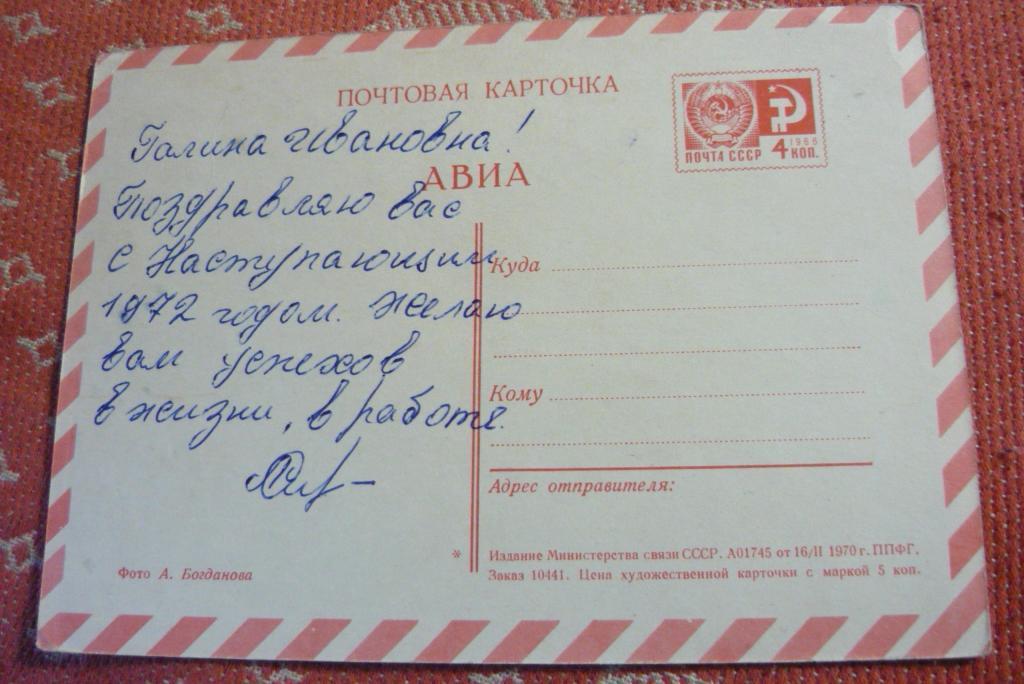 ПОЧТОВАЯ КАРТОЧКА
АВИА
1966
ПОЧТА СССР 4 КОП.
Галина Ивановна!
Поздравляю вас
с Наступающим
1972 годом. Желаю
вам успехов
в жизни, в работе.
Куда
Кому
Адрес отправителя:
Фото А. Богданова
* Издание Министерства связи СССР. А01745 от 16/II 1970 г. ППФГ.
Заказ 10441. Цена художественной карточки с маркой 5 коп.